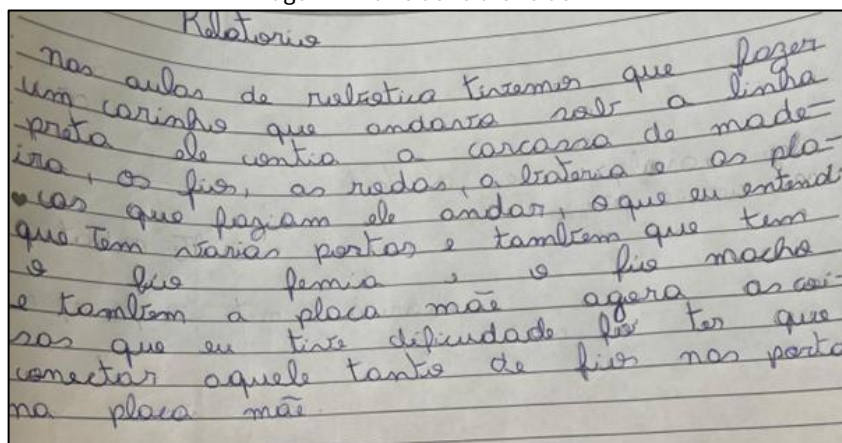 Relatorio
nas aulas de robotica tivemos que fazer
um carinho que andava sob a linha
preta ele contia a carcassa de made-
ira, os fios, as rodas, a bateria e as pla-
cas que faziam ele andar, o que eu entendi
que tem varias portas e tambem que tem
o fio femia e o fio macho
e tambem a placa mãe agora as coi-
sas que eu tive dificudade foi ter que
conectar aquele tanto de fios nas porta
na placa mãe.